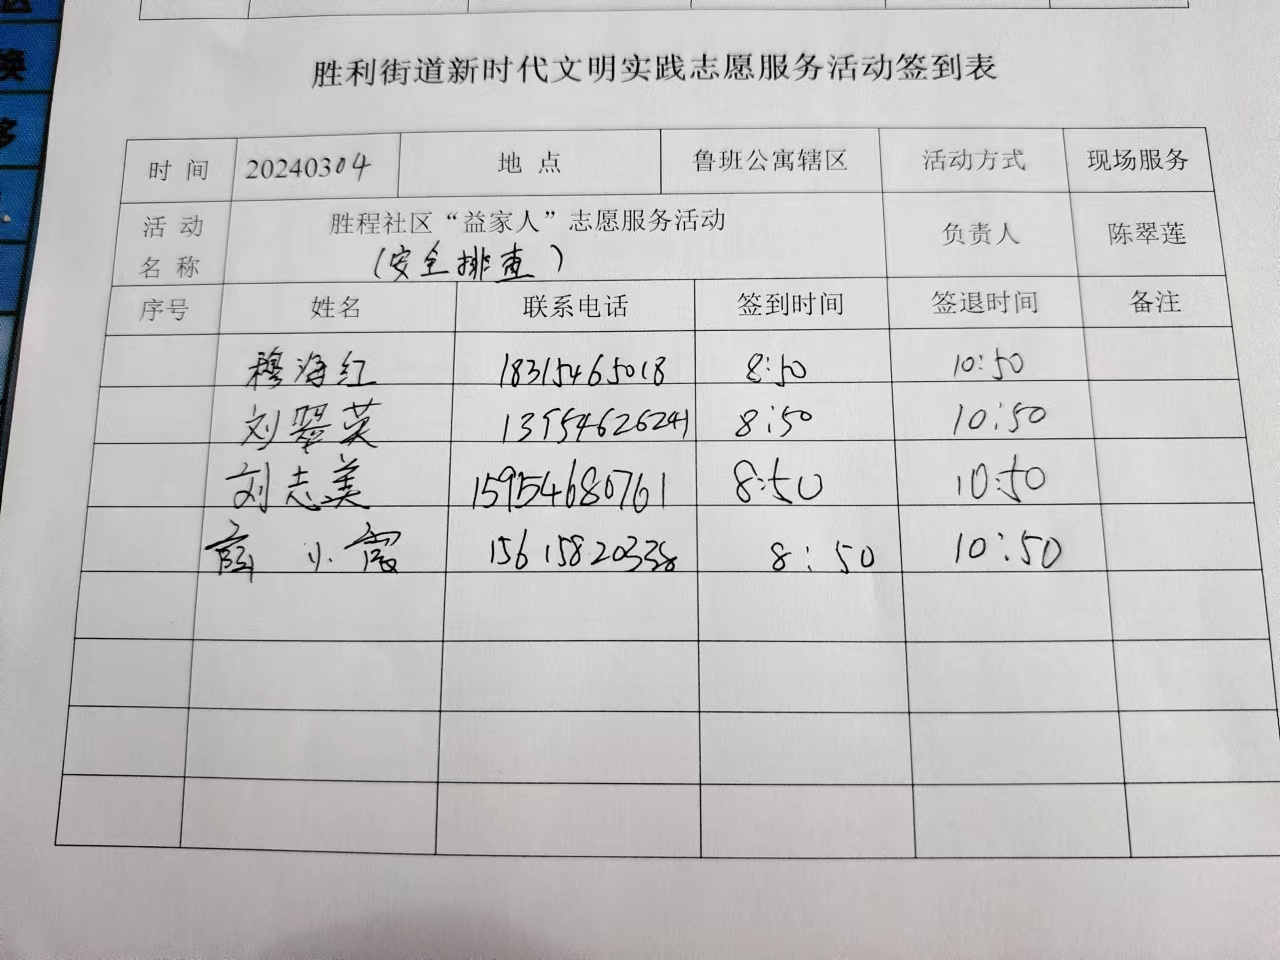 胜利街道新时代文明实践志愿服务活动签到表
时 间 20240304 地 点 鲁班公寓辖区 活动方式 现场服务
活 动 名 称 胜程社区“益家人”志愿服务活动 负责人 陈翠莲
(安全排查)
序号 姓名 联系电话 签到时间 签退时间 备注
穆海红 18315465018 8:50 10:50
刘翠英 13954626241 8:50 10:50
刘志美 15954680761 8:50 10:50
小霞 15615820338 8:50 10:50